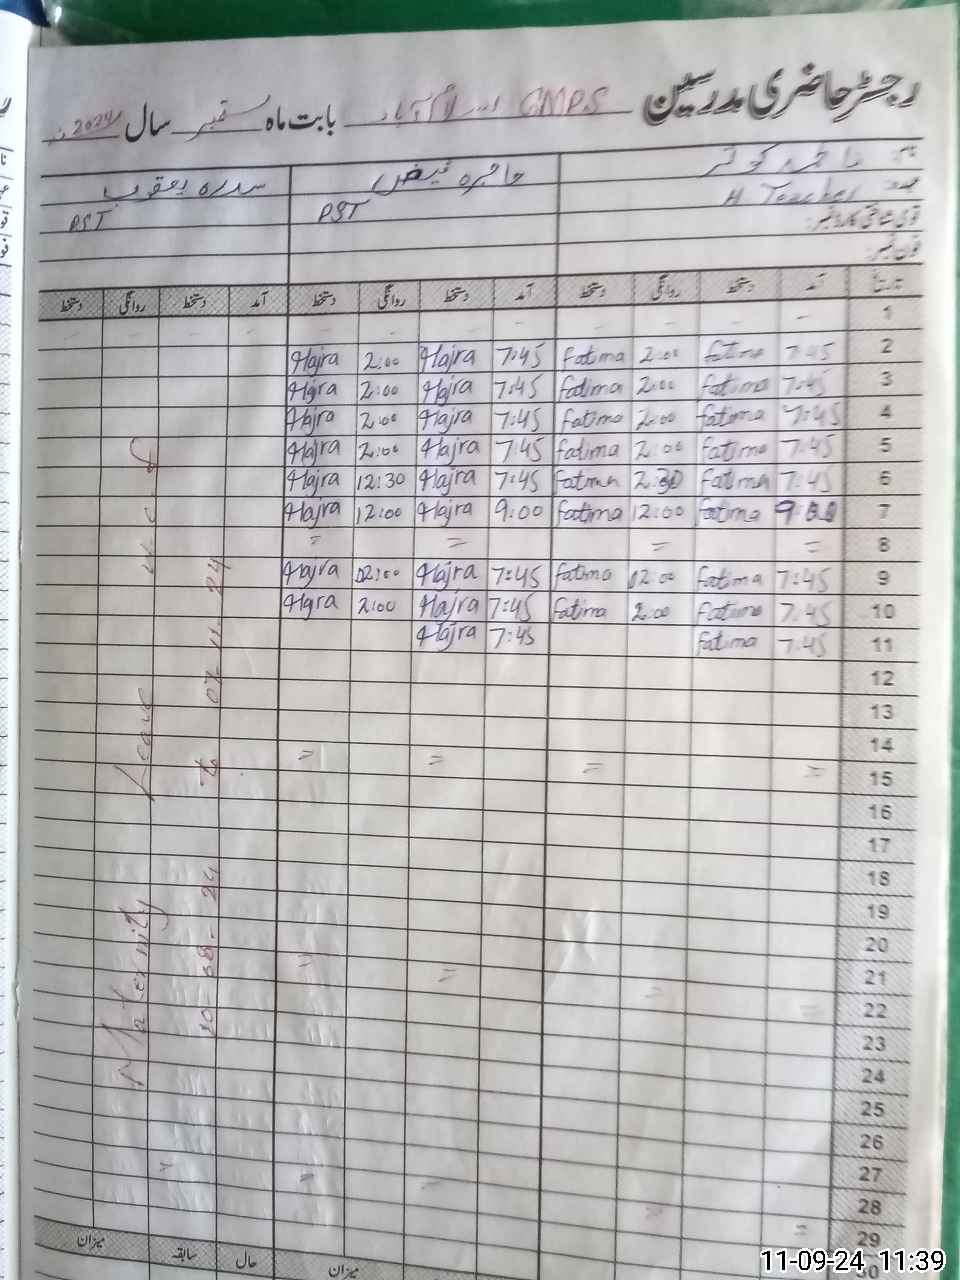 رجسٹر حاضری مدرسین GMPS اسلام آباد بابت ماہ ستمبر سال 2024ء
نام: فاطمہ کوثر حاجرہ فیض سدرہ یعقوب
عہدہ: H. Teacher PST PST
قومی شناختی کارڈ نمبر:
فون نمبر:
تاریخ آمد دستخط روانگی دستخط آمد دستخط روانگی دستخط آمد دستخط روانگی دستخط
1 - - - - - - - - - - - -
2 7:45 fatima 2:00 fatima 7:45 Hajra 2:00 Hajra
3 7:45 fatima 2:00 fatima 7:45 Hajra 2:00 Hajra
4 7:45 fatima 2:00 fatima 7:45 Hajra 2:00 Hajra
5 7:45 fatima 2:00 fatima 7:45 Hajra 2:00 Hajra
6 7:45 fatima fatima 7:45 Hajra 12:30 Hajra
7 9:00 fatima 12:00 fatima 9:00 Hajra 12:00 Hajra
8 = = = =
9 7:45 fatima fatima 7:45 Hajra Hajra
10 7:45 fatima 2:00 fatima 7:45 Hajra 2:00 Hajra
11 7:45 fatima 7:45 Hajra
12
13
14
15 = = = =
16
17
18
19
20
21
22 = = = =
23
24
25
26
27
28
29 = = = =
30
Maternity Leave
to 07-11-24
میزان حال سابقہ میزان
11-09-24 11:39